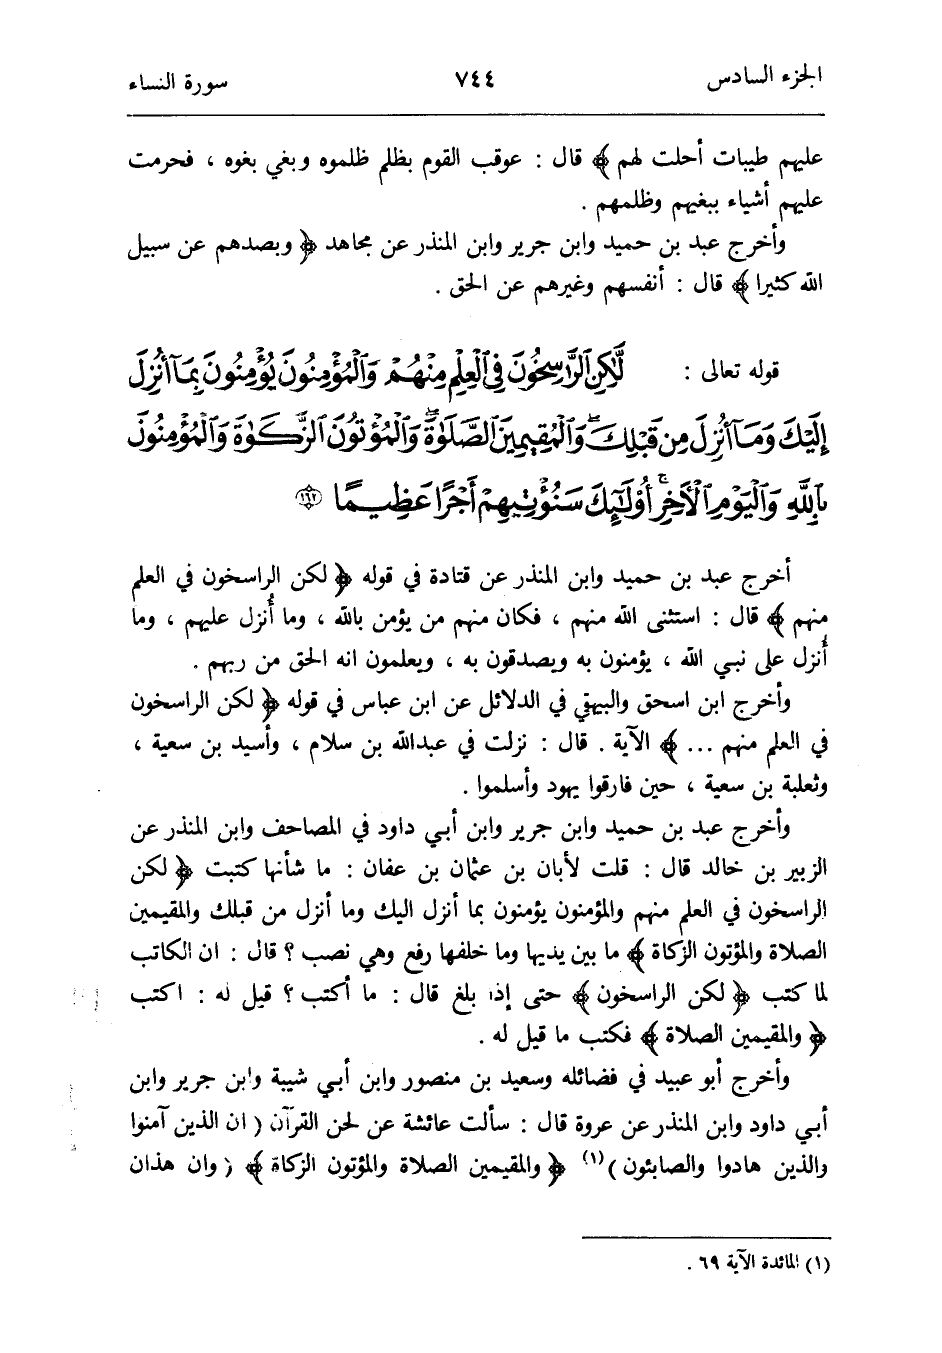 الجزء السادس ٧٤٤ سورة النساء
عليهم طيبات أحلت لهم ﴾ قال : عوقب القوم بظلم ظلموه وبغي بغوه ، فحرمت
عليهم أشياء ببغيهم وظلمهم .
وأخرج عبد بن حميد وابن جرير وابن المنذر عن مجاهد ﴿ وبصدهم عن سبيل
الله كثيرا ﴾ قال : أنفسهم وغيرهم عن الحق .
قوله تعالى : لَّٰكِنِ الرَّاسِخُونَ فِي الْعِلْمِ مِنْهُمْ وَالْمُؤْمِنُونَ يُؤْمِنُونَ بِمَا أُنزِلَ
إِلَيْكَ وَمَا أُنزِلَ مِن قَبْلِكَ ۚ وَالْمُقِيمِينَ الصَّلَوٰةَ ۚ وَالْمُؤْتُونَ الزَّكَوٰةَ وَالْمُؤْمِنُونَ
بِاللَّهِ وَالْيَوْمِ الْآخِرِ أُوْلَٰئِكَ سَنُؤْتِيهِمْ أَجْرًا عَظِيمًا ١٦٢
أخرج عبد بن حميد وابن المنذر عن قتادة في قوله ﴿ لكن الراسخون في العلم
منهم ﴾ قال : استثنى الله منهم ، فكان منهم من يؤمن بالله ، وما أنزل عليهم ، وما
أُنزل على نبي الله ، يؤمنون به ويصدقون به ، ويعلمون انه الحق من ربهم .
وأخرج ابن اسحق والبيهقي في الدلائل عن ابن عباس في قوله ﴿ لكن الراسخون
في العلم منهم ... ﴾ الآية . قال : نزلت في عبدالله بن سلام ، وأسيد بن سعية ،
وثعلبة بن سعية ، حين فارقوا يهود وأسلموا .
وأخرج عبد بن حميد وابن جرير وابن أبي داود في المصاحف وابن المنذر عن
الزبير بن خالد قال : قلت لأبان بن عثمان بن عفان : ما شأنها كتبت ﴿ لكن
الراسخون في العلم منهم والمؤمنون يؤمنون بما أنزل اليك وما أنزل من قبلك والمقيمين
الصلاة والمؤتون الزكاة ﴾ ما بين يديها وما خلفها رفع وهي نصب ؟ قال : ان الكاتب
لما كتب ﴿ لكن الراسخون ﴾ حتى إذا بلغ قال : ما أكتب ؟ قيل له : اكتب
﴿ والمقيمين الصلاة ﴾ فكتب ما قيل له .
وأخرج أبو عبيد في فضائله وسعيد بن منصور وابن أبي شيبة وابن جرير وابن
أبي داود وابن المنذر عن عروة قال : سألت عائشة عن لحن القرآن ( ان الذين آمنوا
والذين هادوا والصابئون )(١) ﴿ والمقيمين الصلاة والمؤتون الزكاة ﴾ ( وان هذان
(١) المائدة الآية ٦٩ .